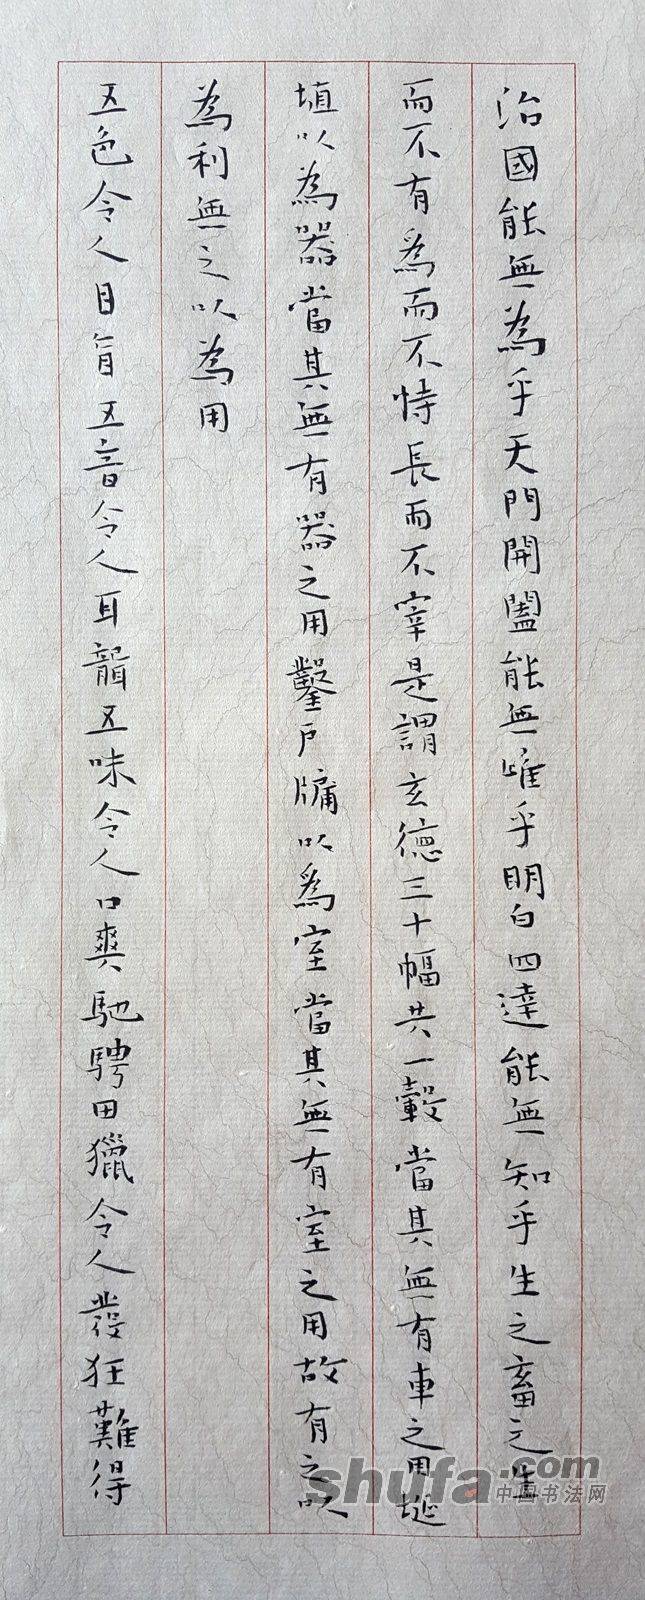 治國能無為乎天門開闔能無唯乎明白四達能無知乎生之畜之生
而不有為而不恃長而不宰是謂玄德三十幅共一轂當其無有車之用埏
埴以為器當其無有器之用鑿户牖以為室當其無有室之用故有之以
為利無之以為用
五色令人目盲五音令人耳聾五味令人口爽馳騁田獵令人發狂難得
shufa.com
中国书法网